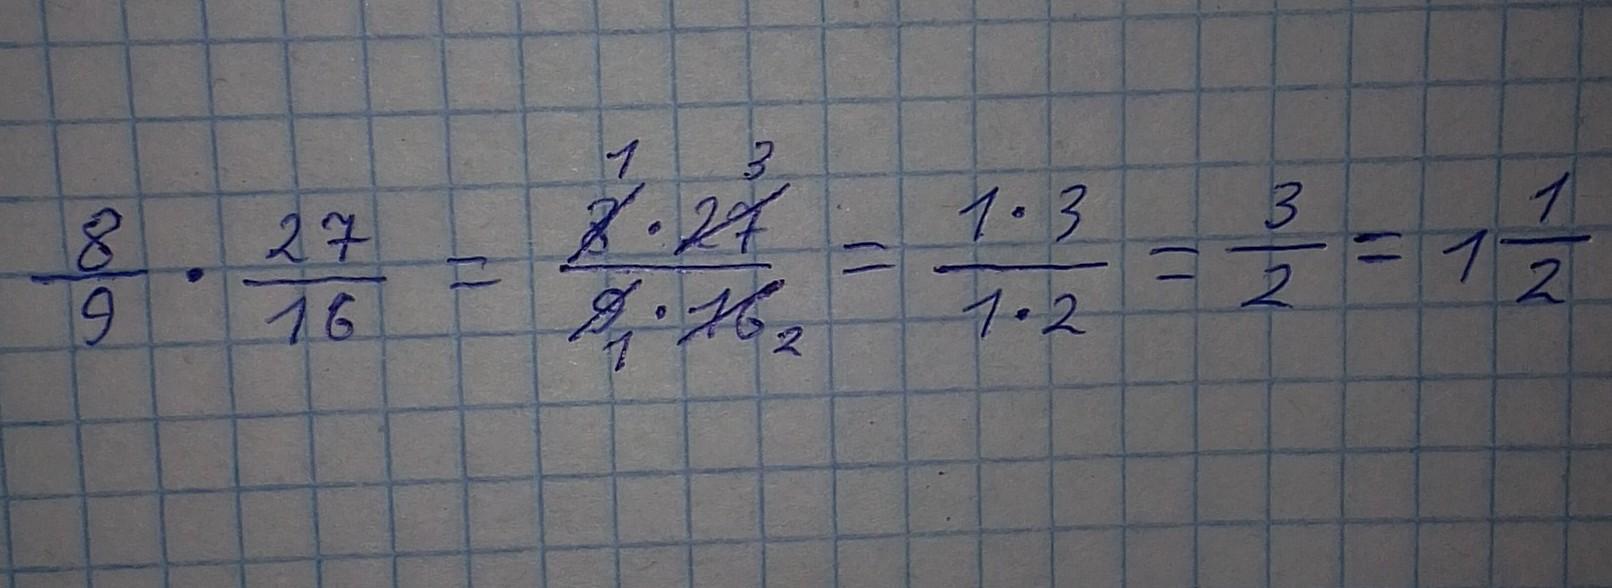 8/9 · 27/16 = 8̸ 1 · 2̸7̸ 3 / 9̸ 1 · 1̸6̸ 2 = 1·3/1·2 = 3/2 = 1 1/2